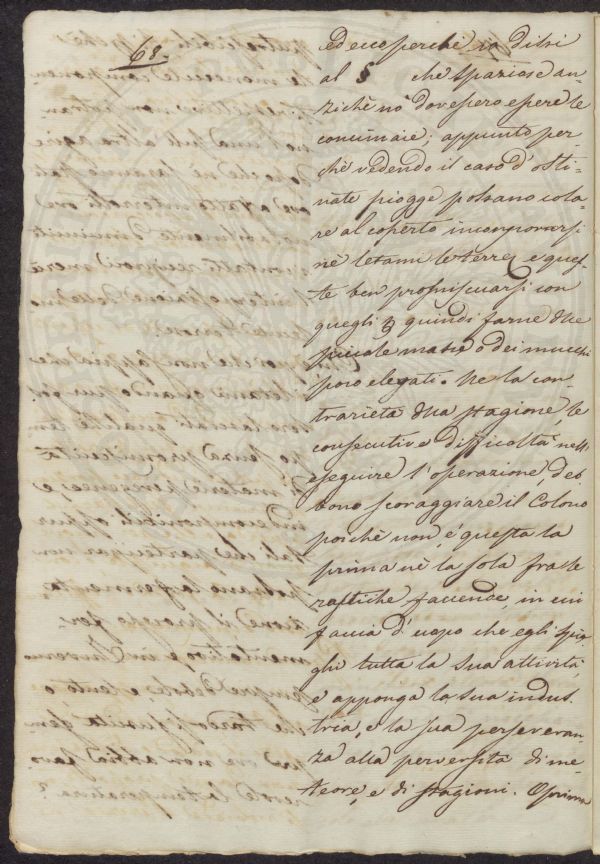 68.
ed ecco perchè io dissi
al § che spaziose an-
zichè nò dovessero essere le
concimaie; appunto per-
chè vedendo il caso d'osti-
nate piogge possano cola-
re al coperto incorporarsi
nè letami le terre e ques-
te ben promiscuarsi con
quegli e quindi farne due
piccole masse o dei mucchi
poco elevati. Ne la con-
trarietà della stagione, le
consecutive difficoltà nell'
eseguire l'operazione, deb-
bono scoraggiare il Colono
poichè non è questa la
prima nè la sola fra le
rustiche faccende, in cui
faccia d'uopo che egli spie-
ghi tutta la sua attività,
e apponga la sua indus-
tria, e la sua perseveran-
za alla perversità di me-
teore, e di stagioni.